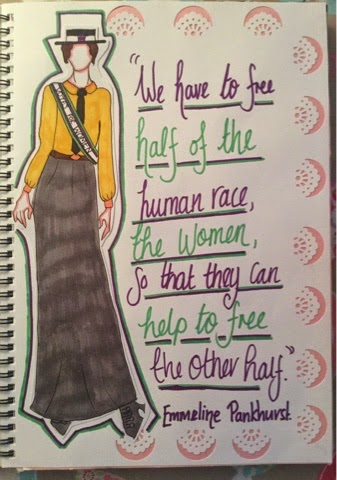 "We have to free
half of the
human race,
the women,
so that they can
help to free
the other half."
Emmeline Pankhurst.